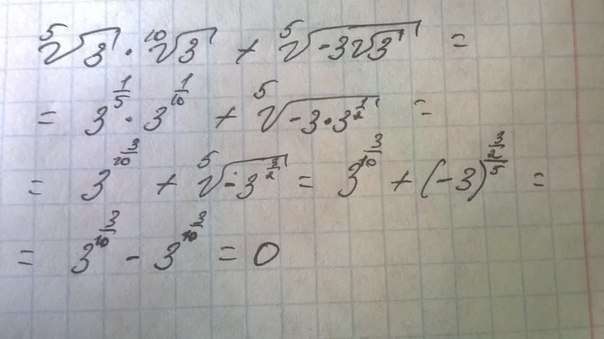 ⁵√3 · ¹⁰√3 + ⁵√(-3√3) =
= 3^(1/5) · 3^(1/10) + ⁵√(-3·3^(1/2)) =
= 3^(3/10) + ⁵√(-3^(3/2)) = 3^(3/10) + (-3)^((3/2)/5) =
= 3^(3/10) - 3^(3/10) = 0